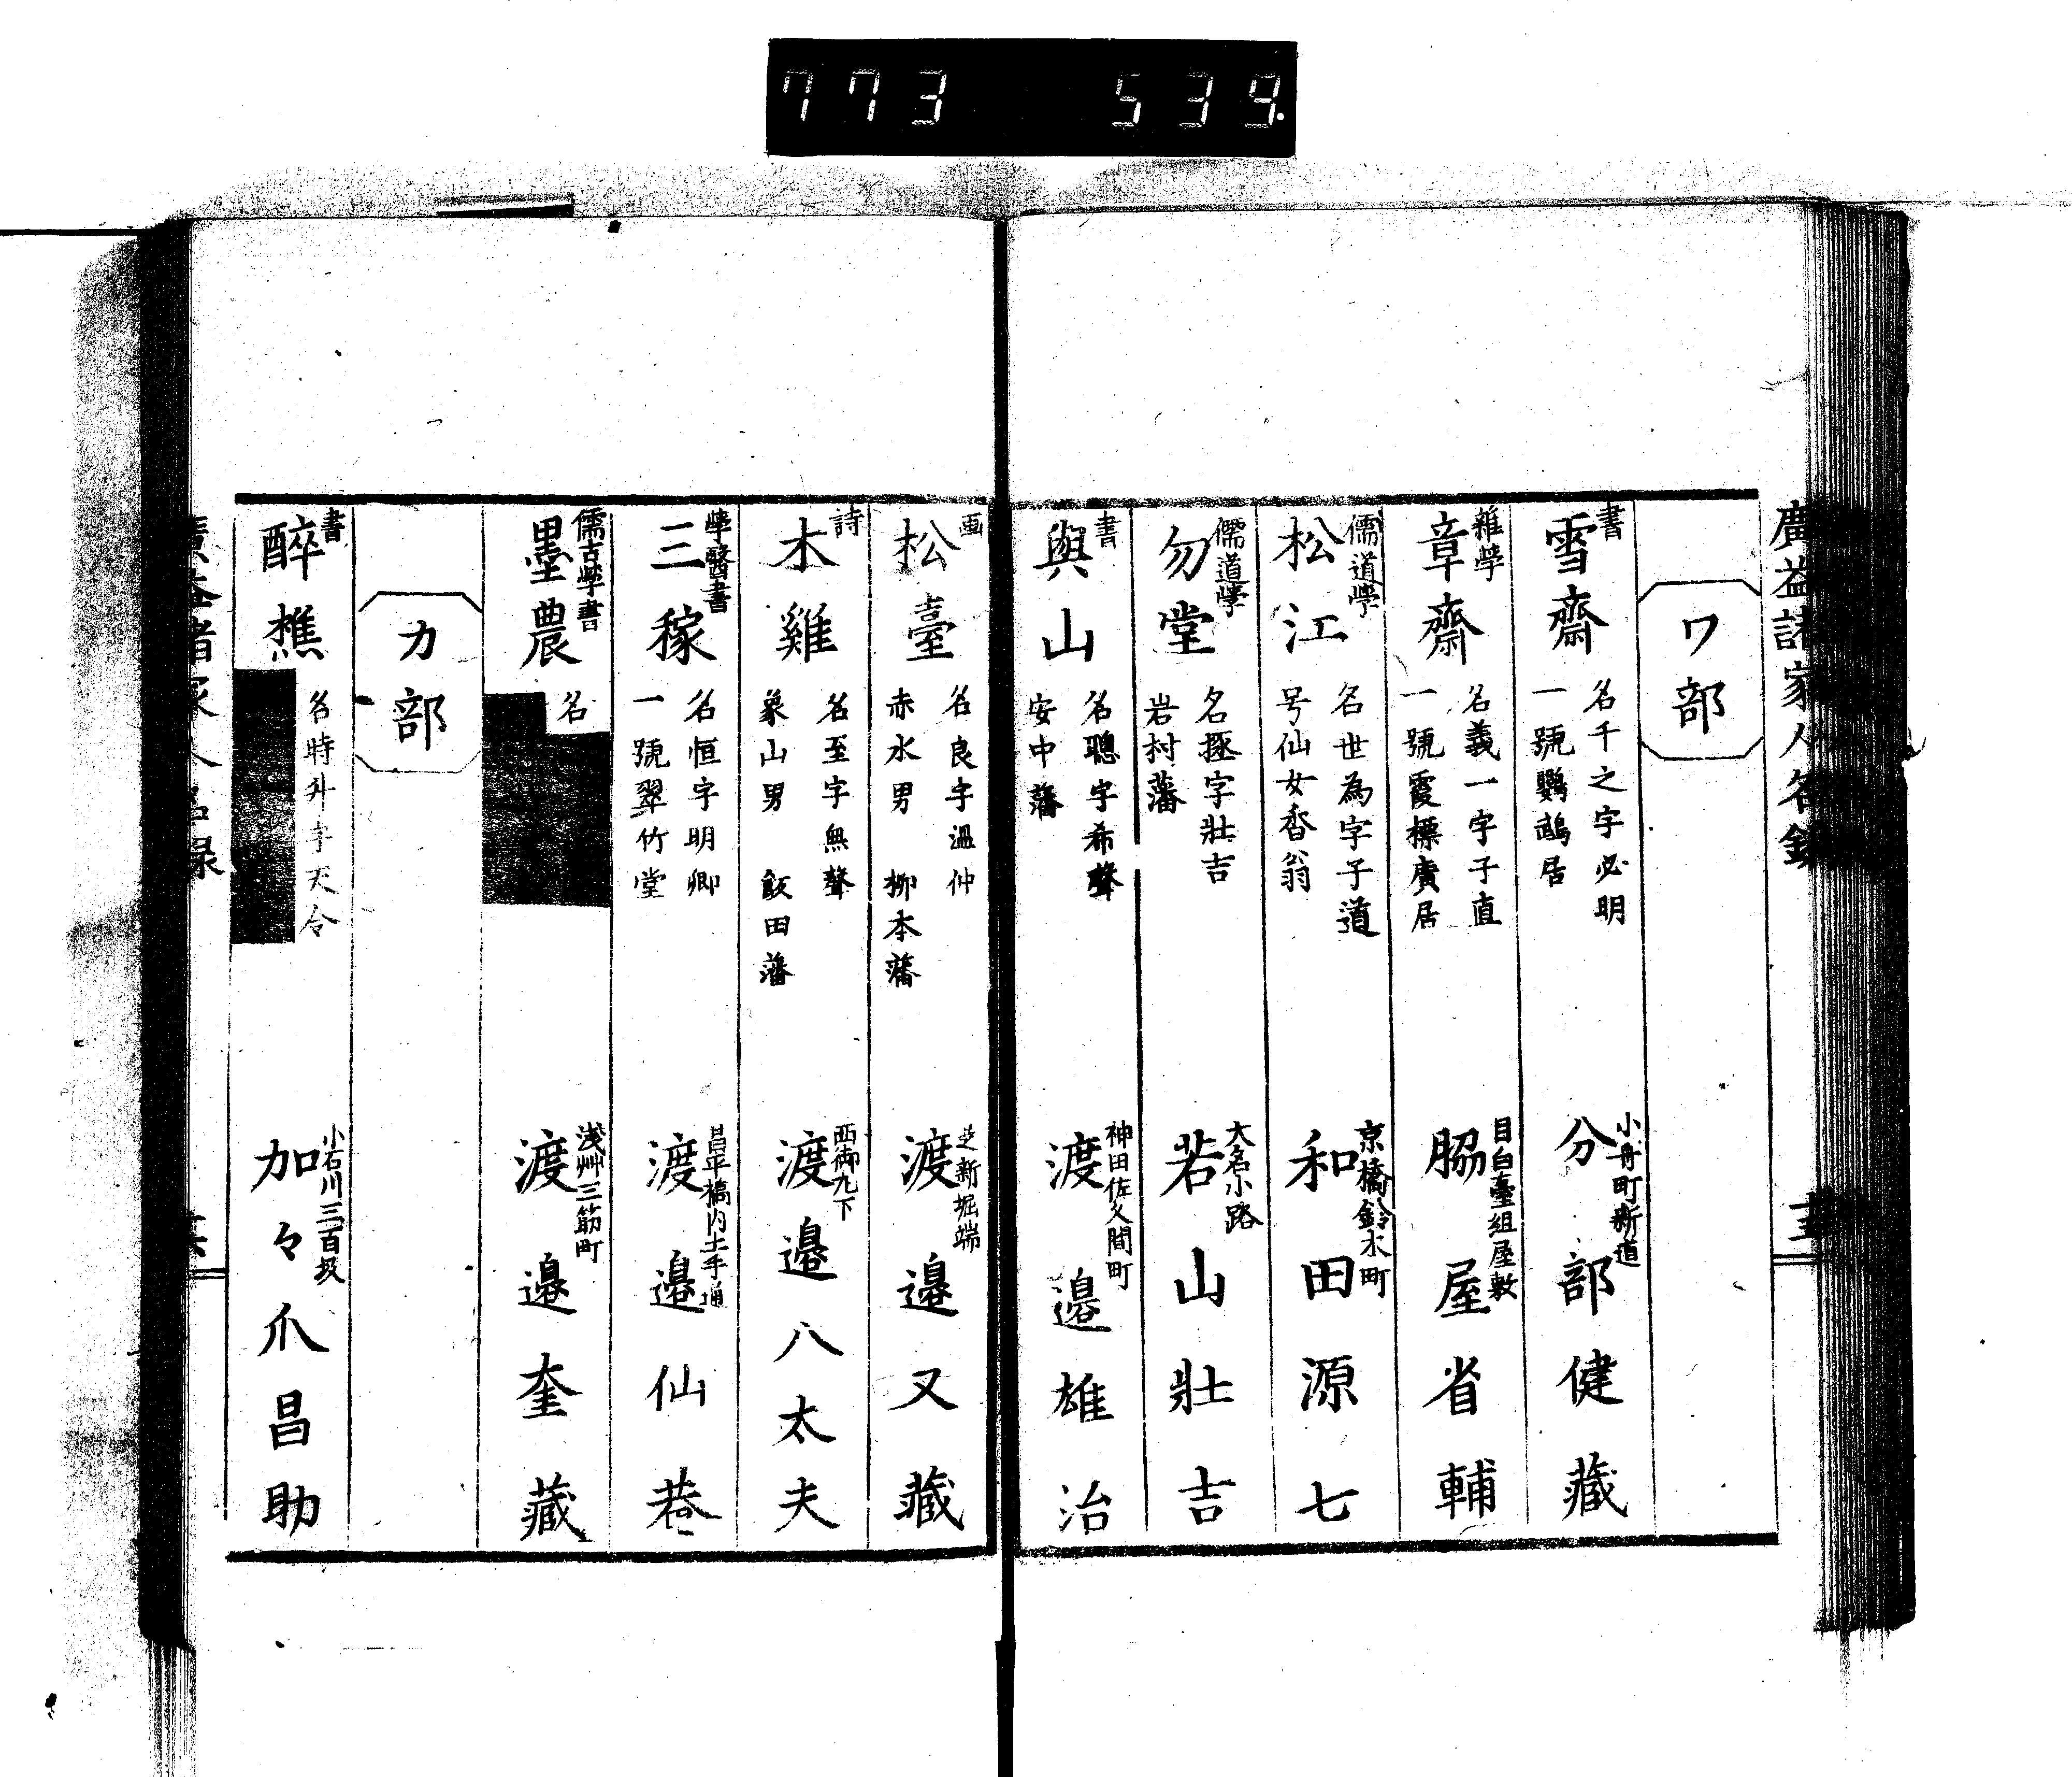 773 539.
廣益諸家人名録
ワ部
書
雪齋
名千之字必明
一號鸚鵡居
小舟町新道
分部健藏
雜學
章齋
名義一字子直
一號霞標賡居
目白臺組屋敷
脇屋省輔
儒道學
松江
名世為字子道
号仙女香翁
京橋鈴木町
和田源七
儒道學
勿堂
名拯字壯吉
岩村藩
大名小路
若山壯吉
書
與山
名聰字希聲
安中藩
神田佐久間町
渡邉雄治
画
松臺
名良字温仲
赤水男 柳本藩
芝新堀端
渡邉又藏
詩
木雞
名至字無聲
象山男 飯田藩
西御丸下
渡邉八太夫
學醫書
三稼
名恒字明卿
一號翠竹堂
昌平橋内土手通
渡邉仙巷
儒古學書
墨農
名
浅艸三筋町
渡邉奎藏
カ部
書
醉樵
名時升字天令
小石川三百坂
加々爪昌助
廣益諸家人名録